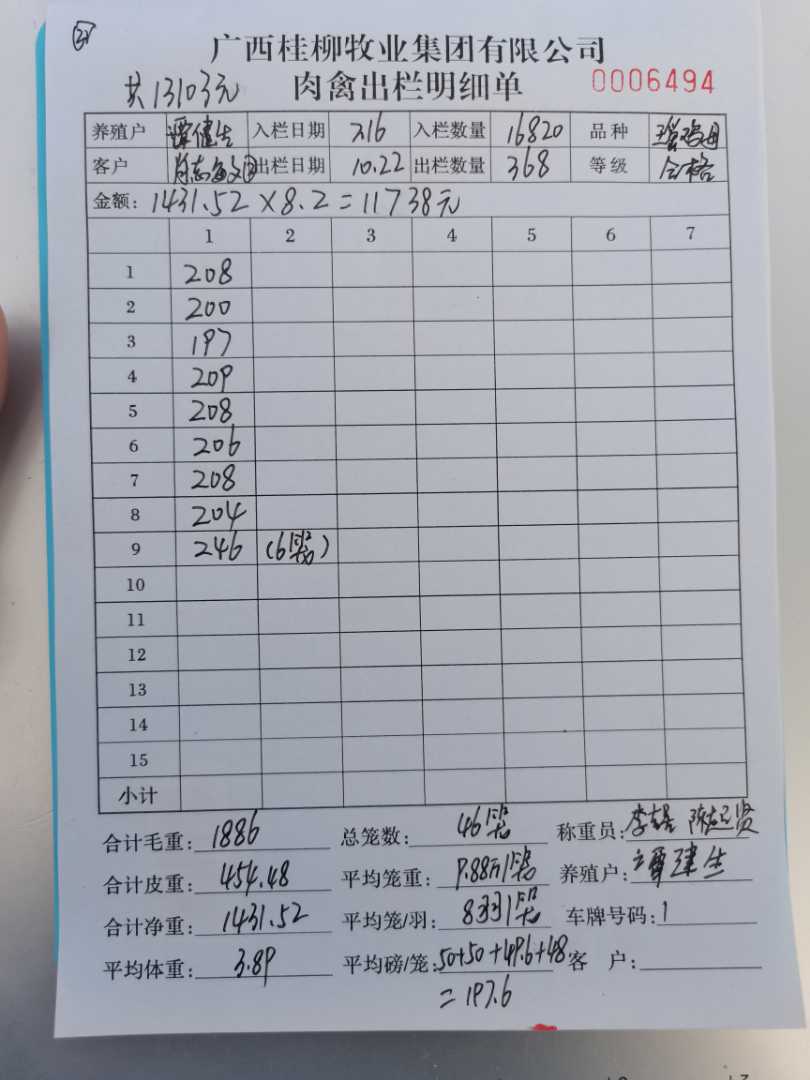 广西桂柳牧业集团有限公司
共13103元 肉禽出栏明细单 0006494
养殖户 入栏日期 7.16 入栏数量 16820 品种
客户 出栏日期 10.22 出栏数量 368 等级 合格
金额: 1431.52×8.2=11738元
1 2 3 4 5 6 7
1 208
2 200
3 197
4 209
5 208
6 206
7 208
8 204
9 246 (6笼)
10
11
12
13
14
15
小计
合计毛重: 1886 总笼数: 46笼 称重员:
合计皮重: 454.48 平均笼重: 9.88斤/笼 养殖户: 谭建生
合计净重: 1431.52 平均笼/羽: 8羽/笼 车牌号码: 1
平均体重: 3.89 平均磅/笼: 50+50+49.6+48 客 户:
=197.6